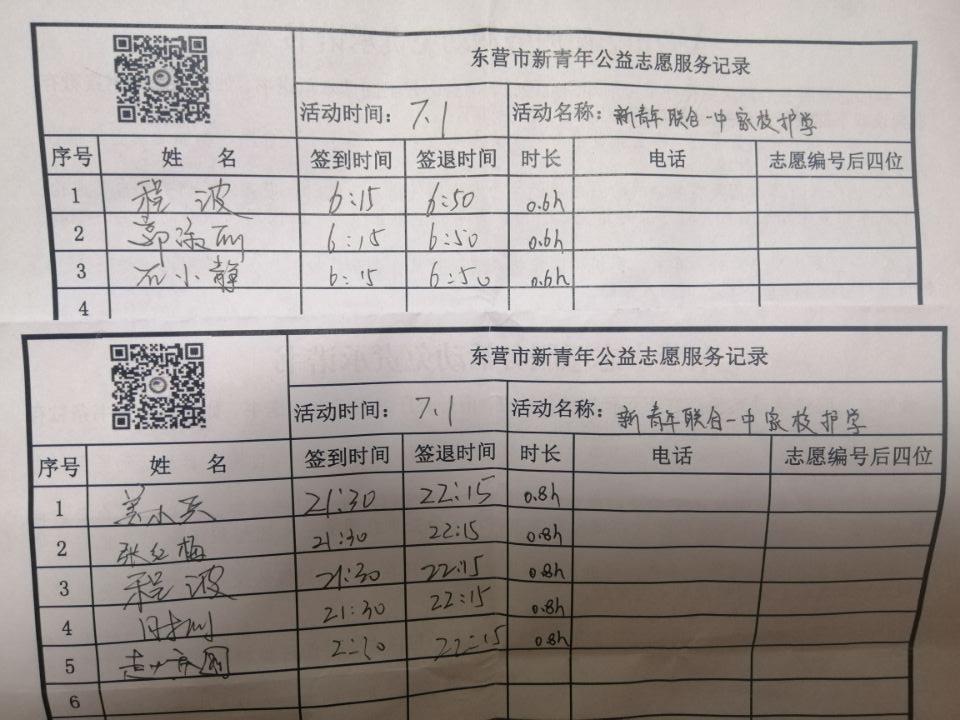 东营市新青年公益志愿服务记录
活动时间: 7.1 活动名称: 新青年联合一中家校护学
序号 姓 名 签到时间 签退时间 时长 电话 志愿编号后四位
1 程波 6:15 6:50 0.6h
2 6:15 6:50 0.6h
3 石小静 6:15 6:50 0.6h
4
东营市新青年公益志愿服务记录
活动时间: 7.1 活动名称: 新青年联合一中家校护学
序号 姓 名 签到时间 签退时间 时长 电话 志愿编号后四位
1 21:30 22:15 0.8h
2 张红梅 21:30 22:15 0.8h
3 程波 21:30 22:15 0.8h
4 21:30 22:15 0.8h
5 22:15 0.8h
6